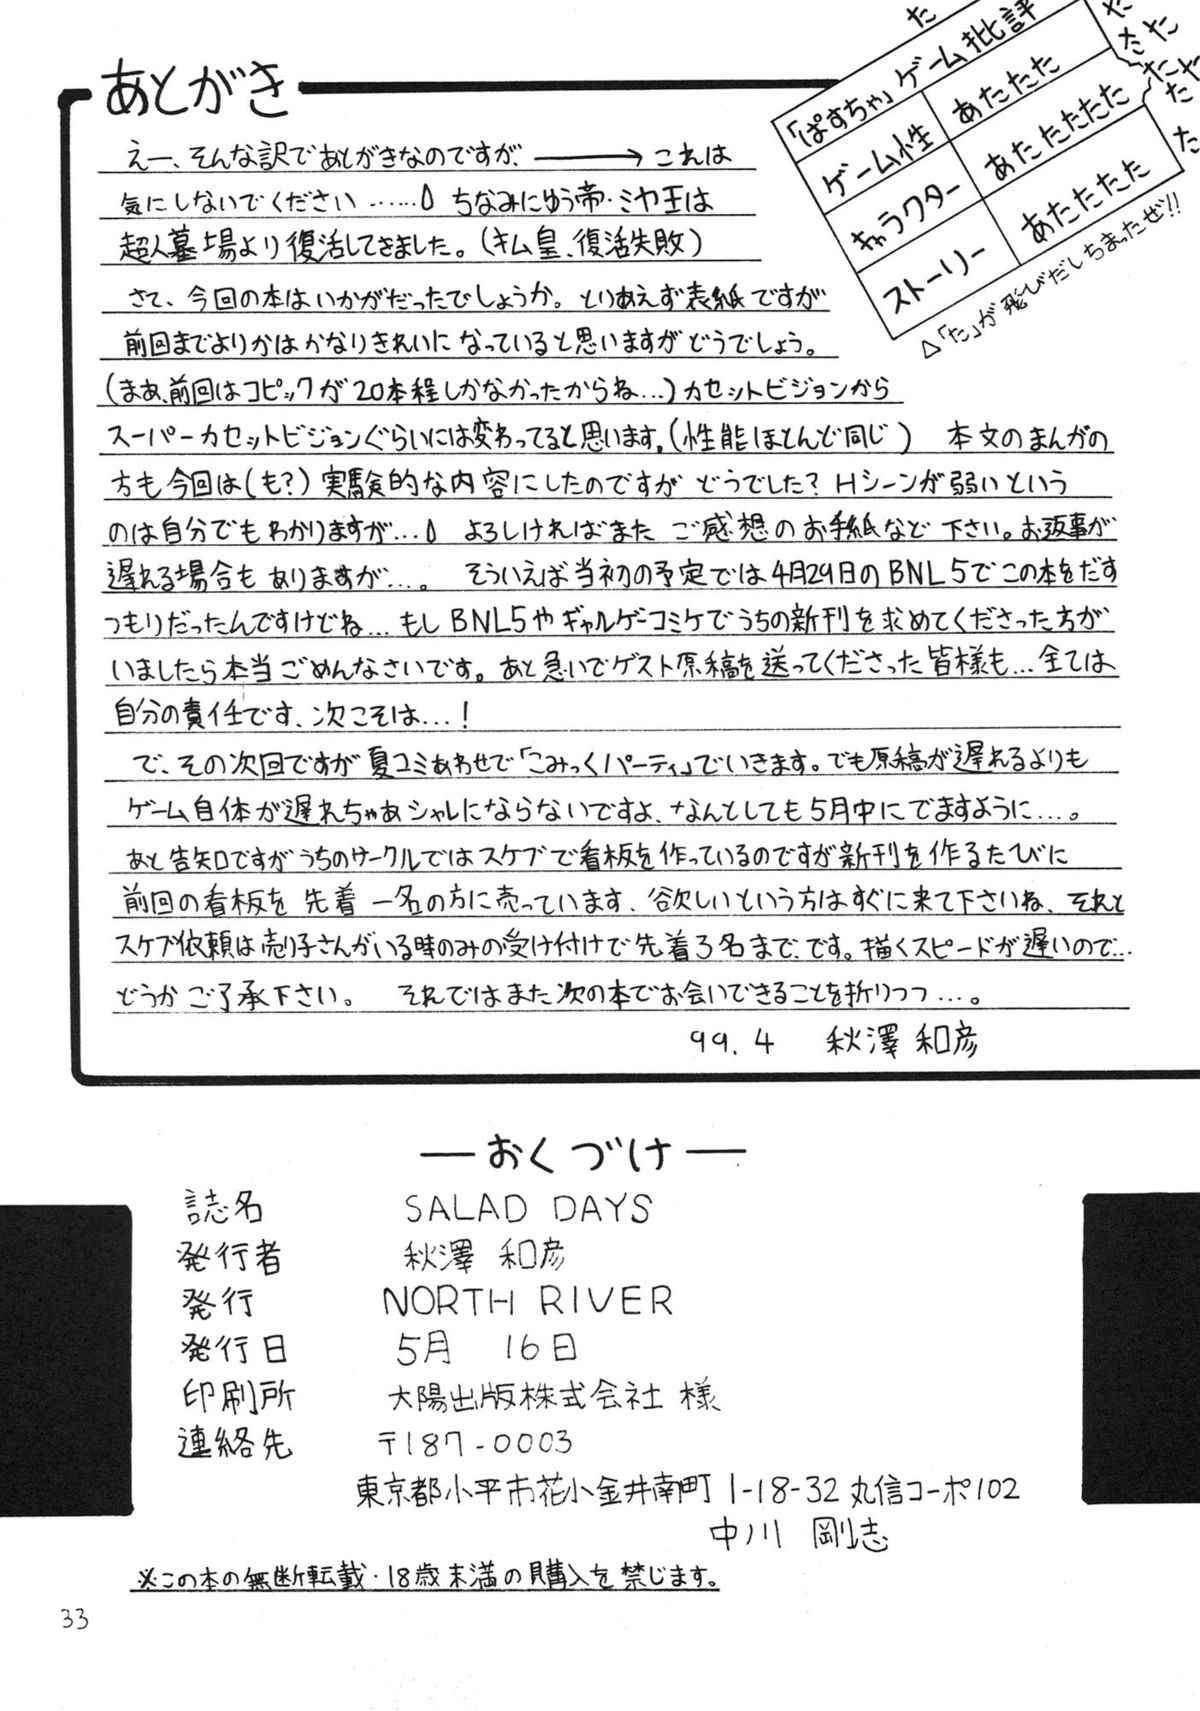 あとがき
えー、そんな訳であとがきなのですが、──→これは
気にしないでください……。ちなみにゆう帝・ミヤ王は
超人墓場より復活してきました。（キム皇、復活失敗）
さて、今回の本はいかがだったでしょうか。とりあえず表紙ですが
前回までよりかはかなりきれいになっていると思いますがどうでしょう。
（まあ、前回はコピックが20本程しかなかったからね…）カセットビジョンから
スーパーカセットビジョンぐらいには変わってると思います。（性能ほとんど同じ）　本文のまんがの
方も今回は（も？）実験的な内容にしたのですがどうでした？Hシーンが弱いという
のは自分でもわかりますが…。よろしければまたご感想のお手紙など下さい。お返事が
遅れる場合もありますが…。そういえば当初の予定では4月29日のBNL5でこの本をだす
つもりだったんですけどね…もしBNL5やギャルゲーコミケでうちの新刊を求めてくださった方が
いましたら本当ごめんなさいです。あと急いでゲスト原稿を送ってくださった皆様も…全ては
自分の責任です、次こそは…！
で、その次回ですが夏コミあわせで「こみっくパーティ」でいきます。でも原稿が遅れるよりも
ゲーム自体が遅れちゃあシャレにならないですよ、なんとしても5月中にでますように…。
あと告知ですがうちのサークルではスケブで看板を作っているのですが新刊を作るたびに
前回の看板を先着一名の方に売っています、欲しいという方はすぐに来て下さいね、それと
スケブ依頼は売り子さんがいる時のみの受け付けで先着3名までです。描くスピードが遅いので…
どうかご了承下さい。　それではまた次の本でお会いできることを祈りつつ…。
99.4　秋澤 和彦
た
た
た
た
た
た
た
た
た
「ぱすちゃ」ゲーム批評
ゲーム性　あたたた
キャラクター　あたたたたた
ストーリー　あたたたた
△「た」が飛びだしちまったぜ!!
―おくづけ―
誌名　SALAD DAYS
発行者　秋澤 和彦
発行　NORTH RIVER
発行日　5月　16日
印刷所　大陽出版株式会社 様
連絡先　〒187-0003
東京都小平市花小金井南町 1-18-32 丸信コーポ102
中川 剛志
※この本の無断転載・18歳未満の購入を禁じます。
33